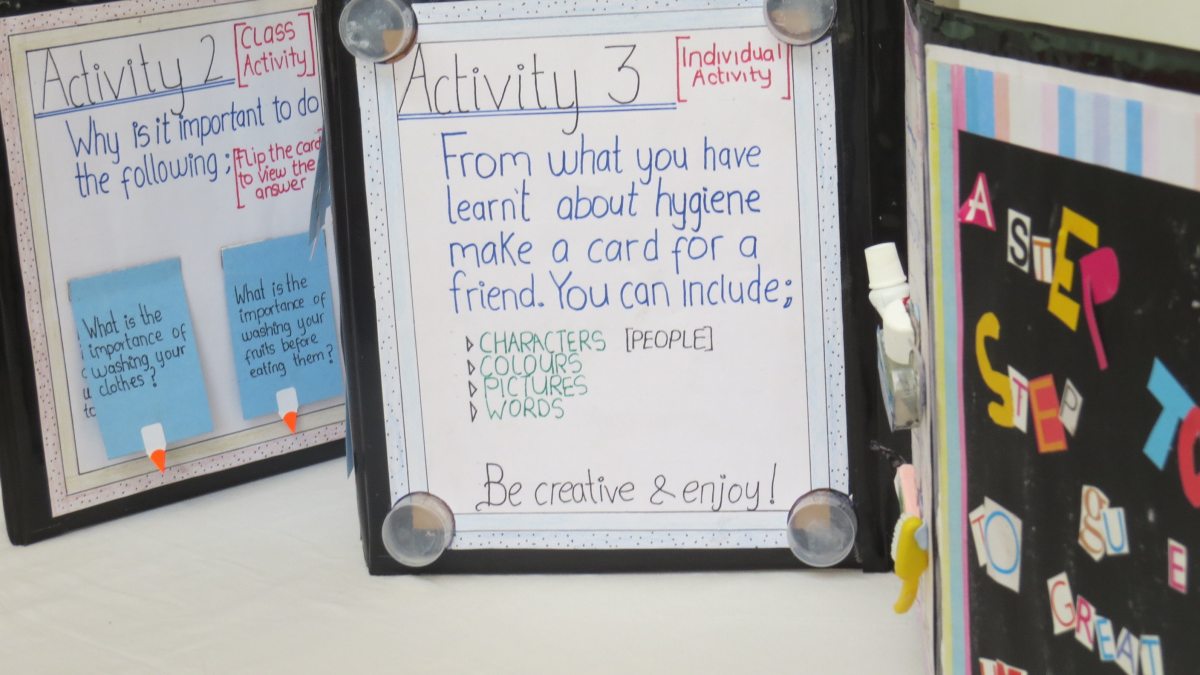 Activity 2
[Class
Activity]
Why is it important to do
the following;
[Flip the card
to view the
answer
What is the
importance of
washing your
clothes?
What is the
importance of
washing your
fruits before
eating them?
Activity 3
[Individual
Activity]
From what you have
learn't about hygiene
make a card for a
friend. You can include;
CHARACTERS [PEOPLE]
COLOURS
PICTURES
WORDS
Be creative & enjoy!
A STEP
STEP TO
TO
GREAT